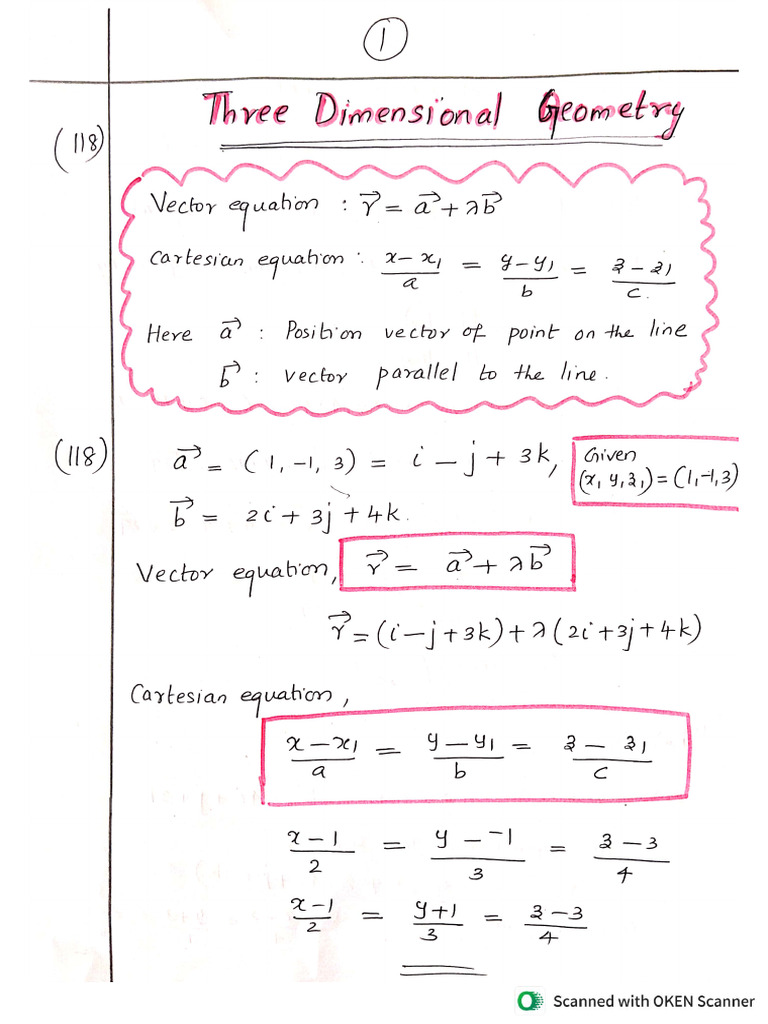 1
Three Dimensional Geometry
(118)
Vector equation : r⃗ = a⃗ + λb⃗
Cartesian equation : (x - x₁)/a = (y - y₁)/b = (z - z₁)/c.
Here a⃗ : Position vector of point on the line
b⃗ : vector parallel to the line.
(118) a⃗ = (1, -1, 3) = i - j + 3k,
Given
(x₁ y₁ z₁) = (1, -1, 3)
b⃗ = 2i + 3j + 4k.
Vector equation, r⃗ = a⃗ + λb⃗
r⃗ = (i - j + 3k) + λ(2i + 3j + 4k)
Cartesian equation,
(x - x₁)/a = (y - y₁)/b = (z - z₁)/c
(x - 1)/2 = (y - -1)/3 = (z - 3)/4
(x - 1)/2 = (y + 1)/3 = (z - 3)/4
Scanned with OKEN Scanner